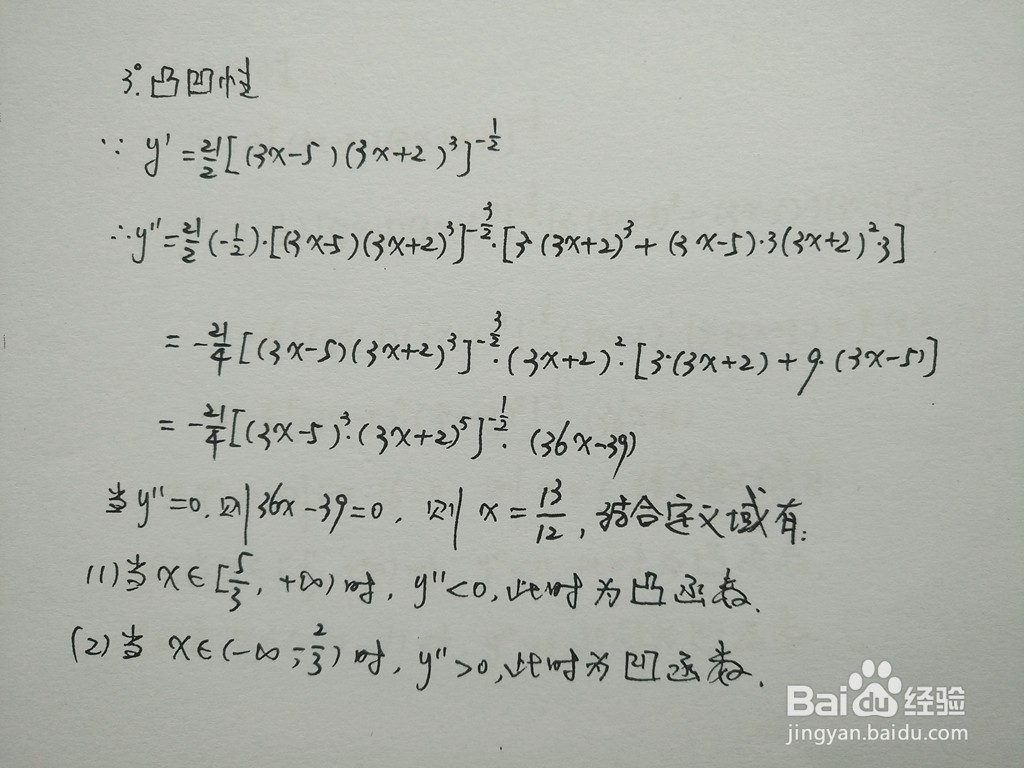 3°.凸凹性
∵ y' = 21/2 [(3x-5)(3x+2)³]^(-1/2)
∴ y'' = 21/2 (-1/2)·[(3x-5)(3x+2)³]^(-3/2)·[3·(3x+2)³ + (3x-5)·3(3x+2)²·3]
= -21/4 [(3x-5)(3x+2)³]^(-3/2)·(3x+2)²·[3·(3x+2) + 9·(3x-5)]
= -21/4 [(3x-5)³·(3x+2)⁵]^(-1/2)·(36x-39)
当y''=0,则36x-39=0, 则x = 13/12, 结合定义域有:
(1)当x∈[5/3, +∞)时, y''<0,此时为凸函数.
(2)当 x∈(-∞,-2/3)时, y''>0,此时为凹函数.
Baidu经验
jingyan.baidu.com